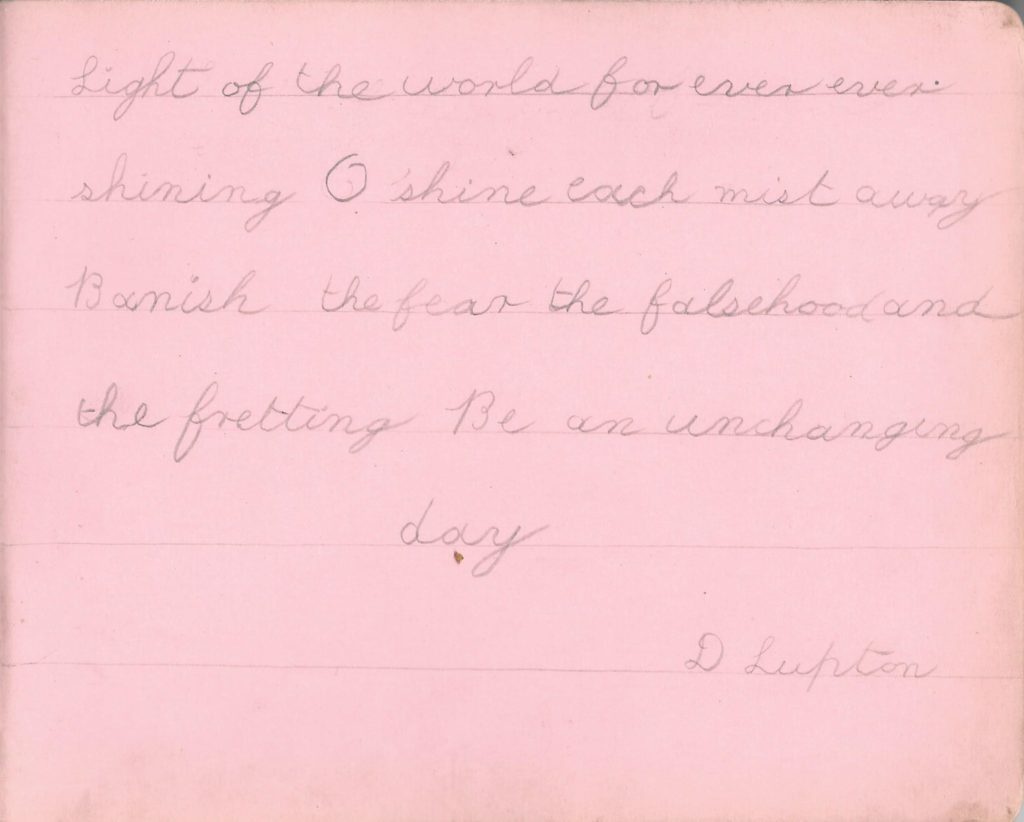 Light of the world for ever ever
shining O shine each mist away
Banish the fear the falsehood and
the fretting Be an unchanging
day
D Lupton